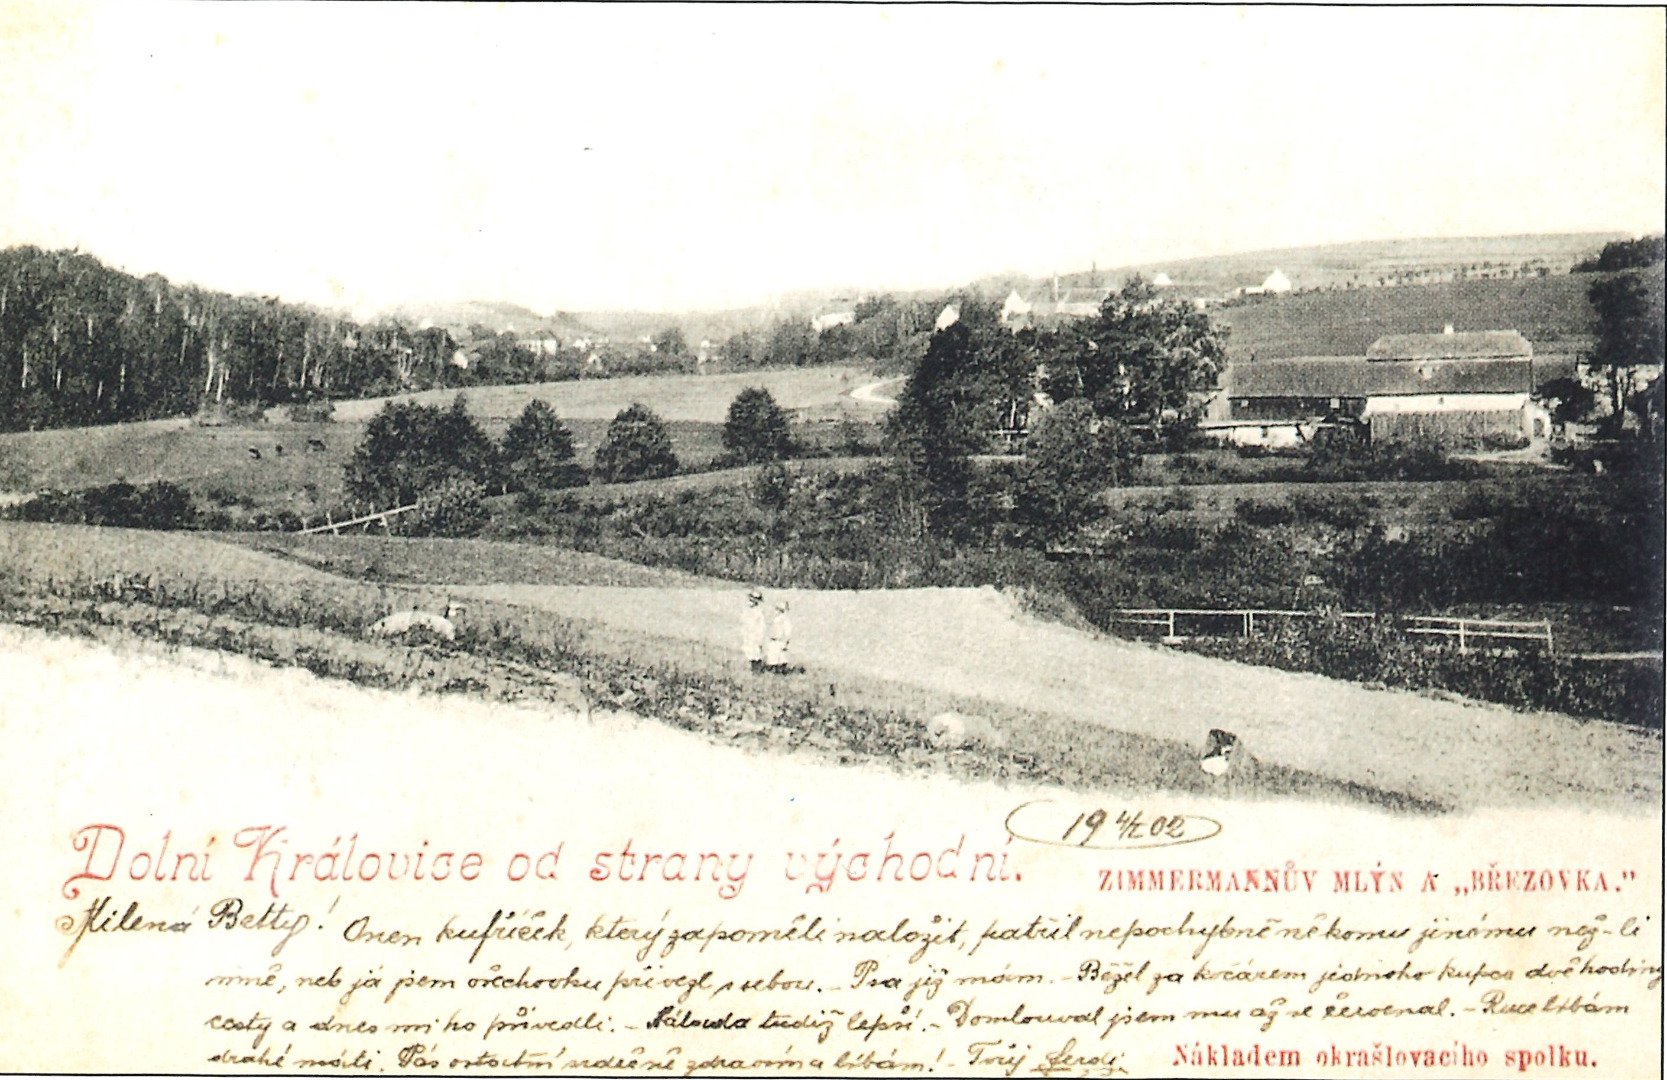 19 4/X 02
Dolní Královice od strany východní.
ZIMMERMANNŮV MLÝN A „BŘEZOVKA."
Milená Betty! Onen kufříček, který zapoměli naložit, patřil nepochybně někomu jinému než-li
mně, neb já jsem ořechovku přivezl s sebou. - Psa již mám. - Běžel za kočárem jednoho kupce dvě hodiny
cesty a dnes mi ho přivedli. - Nálada tudíž lepší. - Domlouval jsem mu až se červenal. - Ruce líbám
drahé máti. Vás ostatní srdečně zdravím a líbám! - Tvůj
Nákladem okrašlovacího spolku.